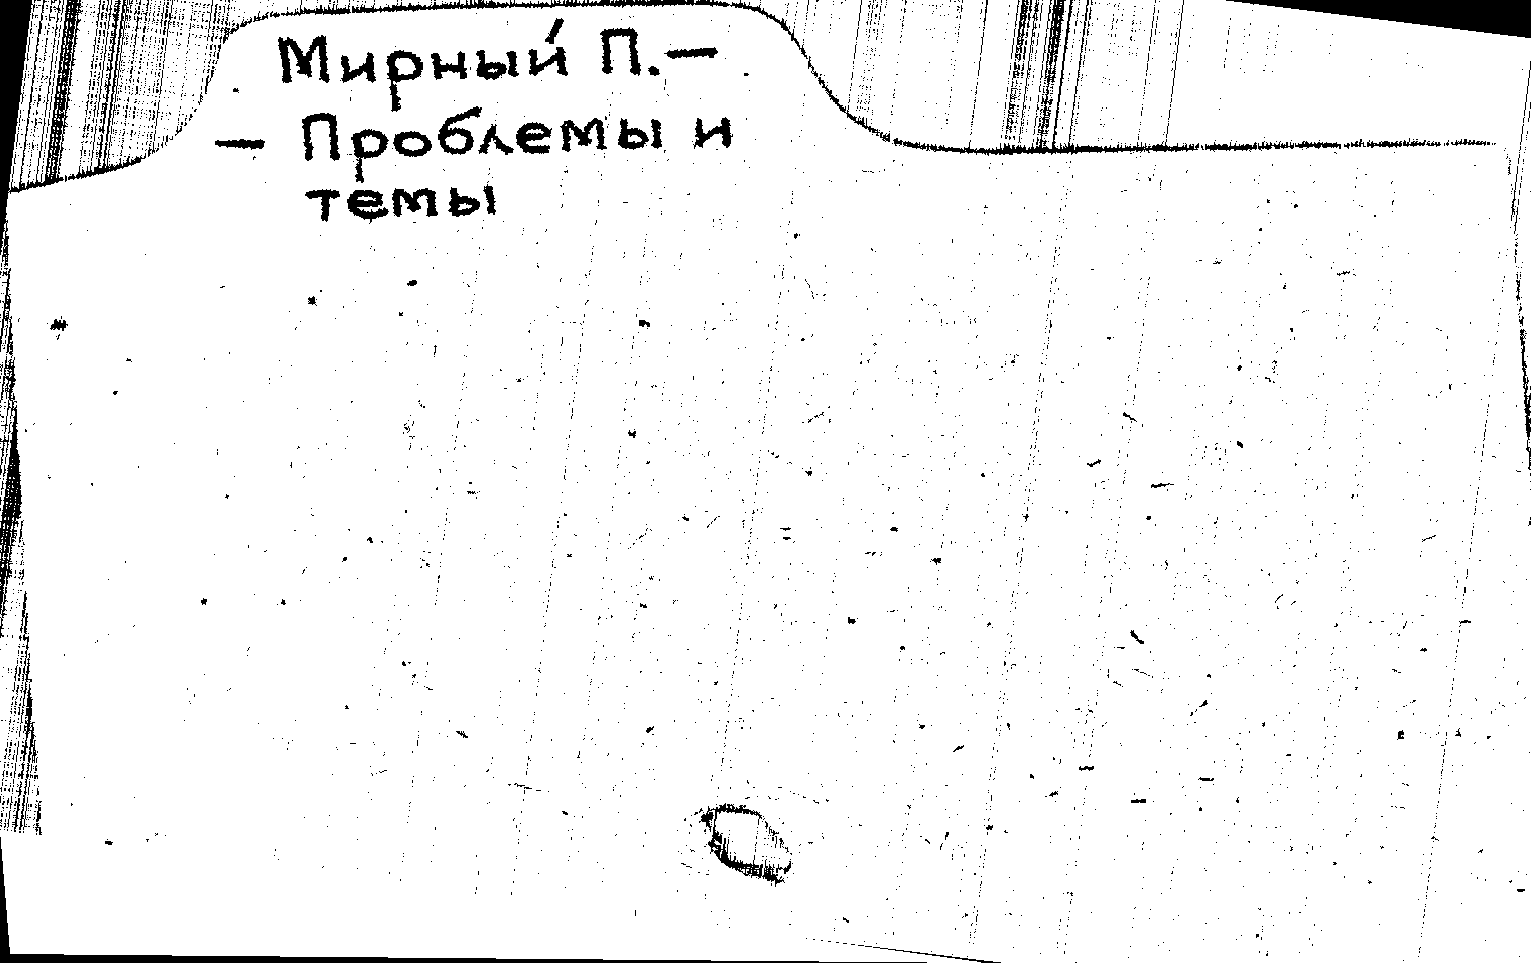 Мирный П. —
— Проблемы и
темы